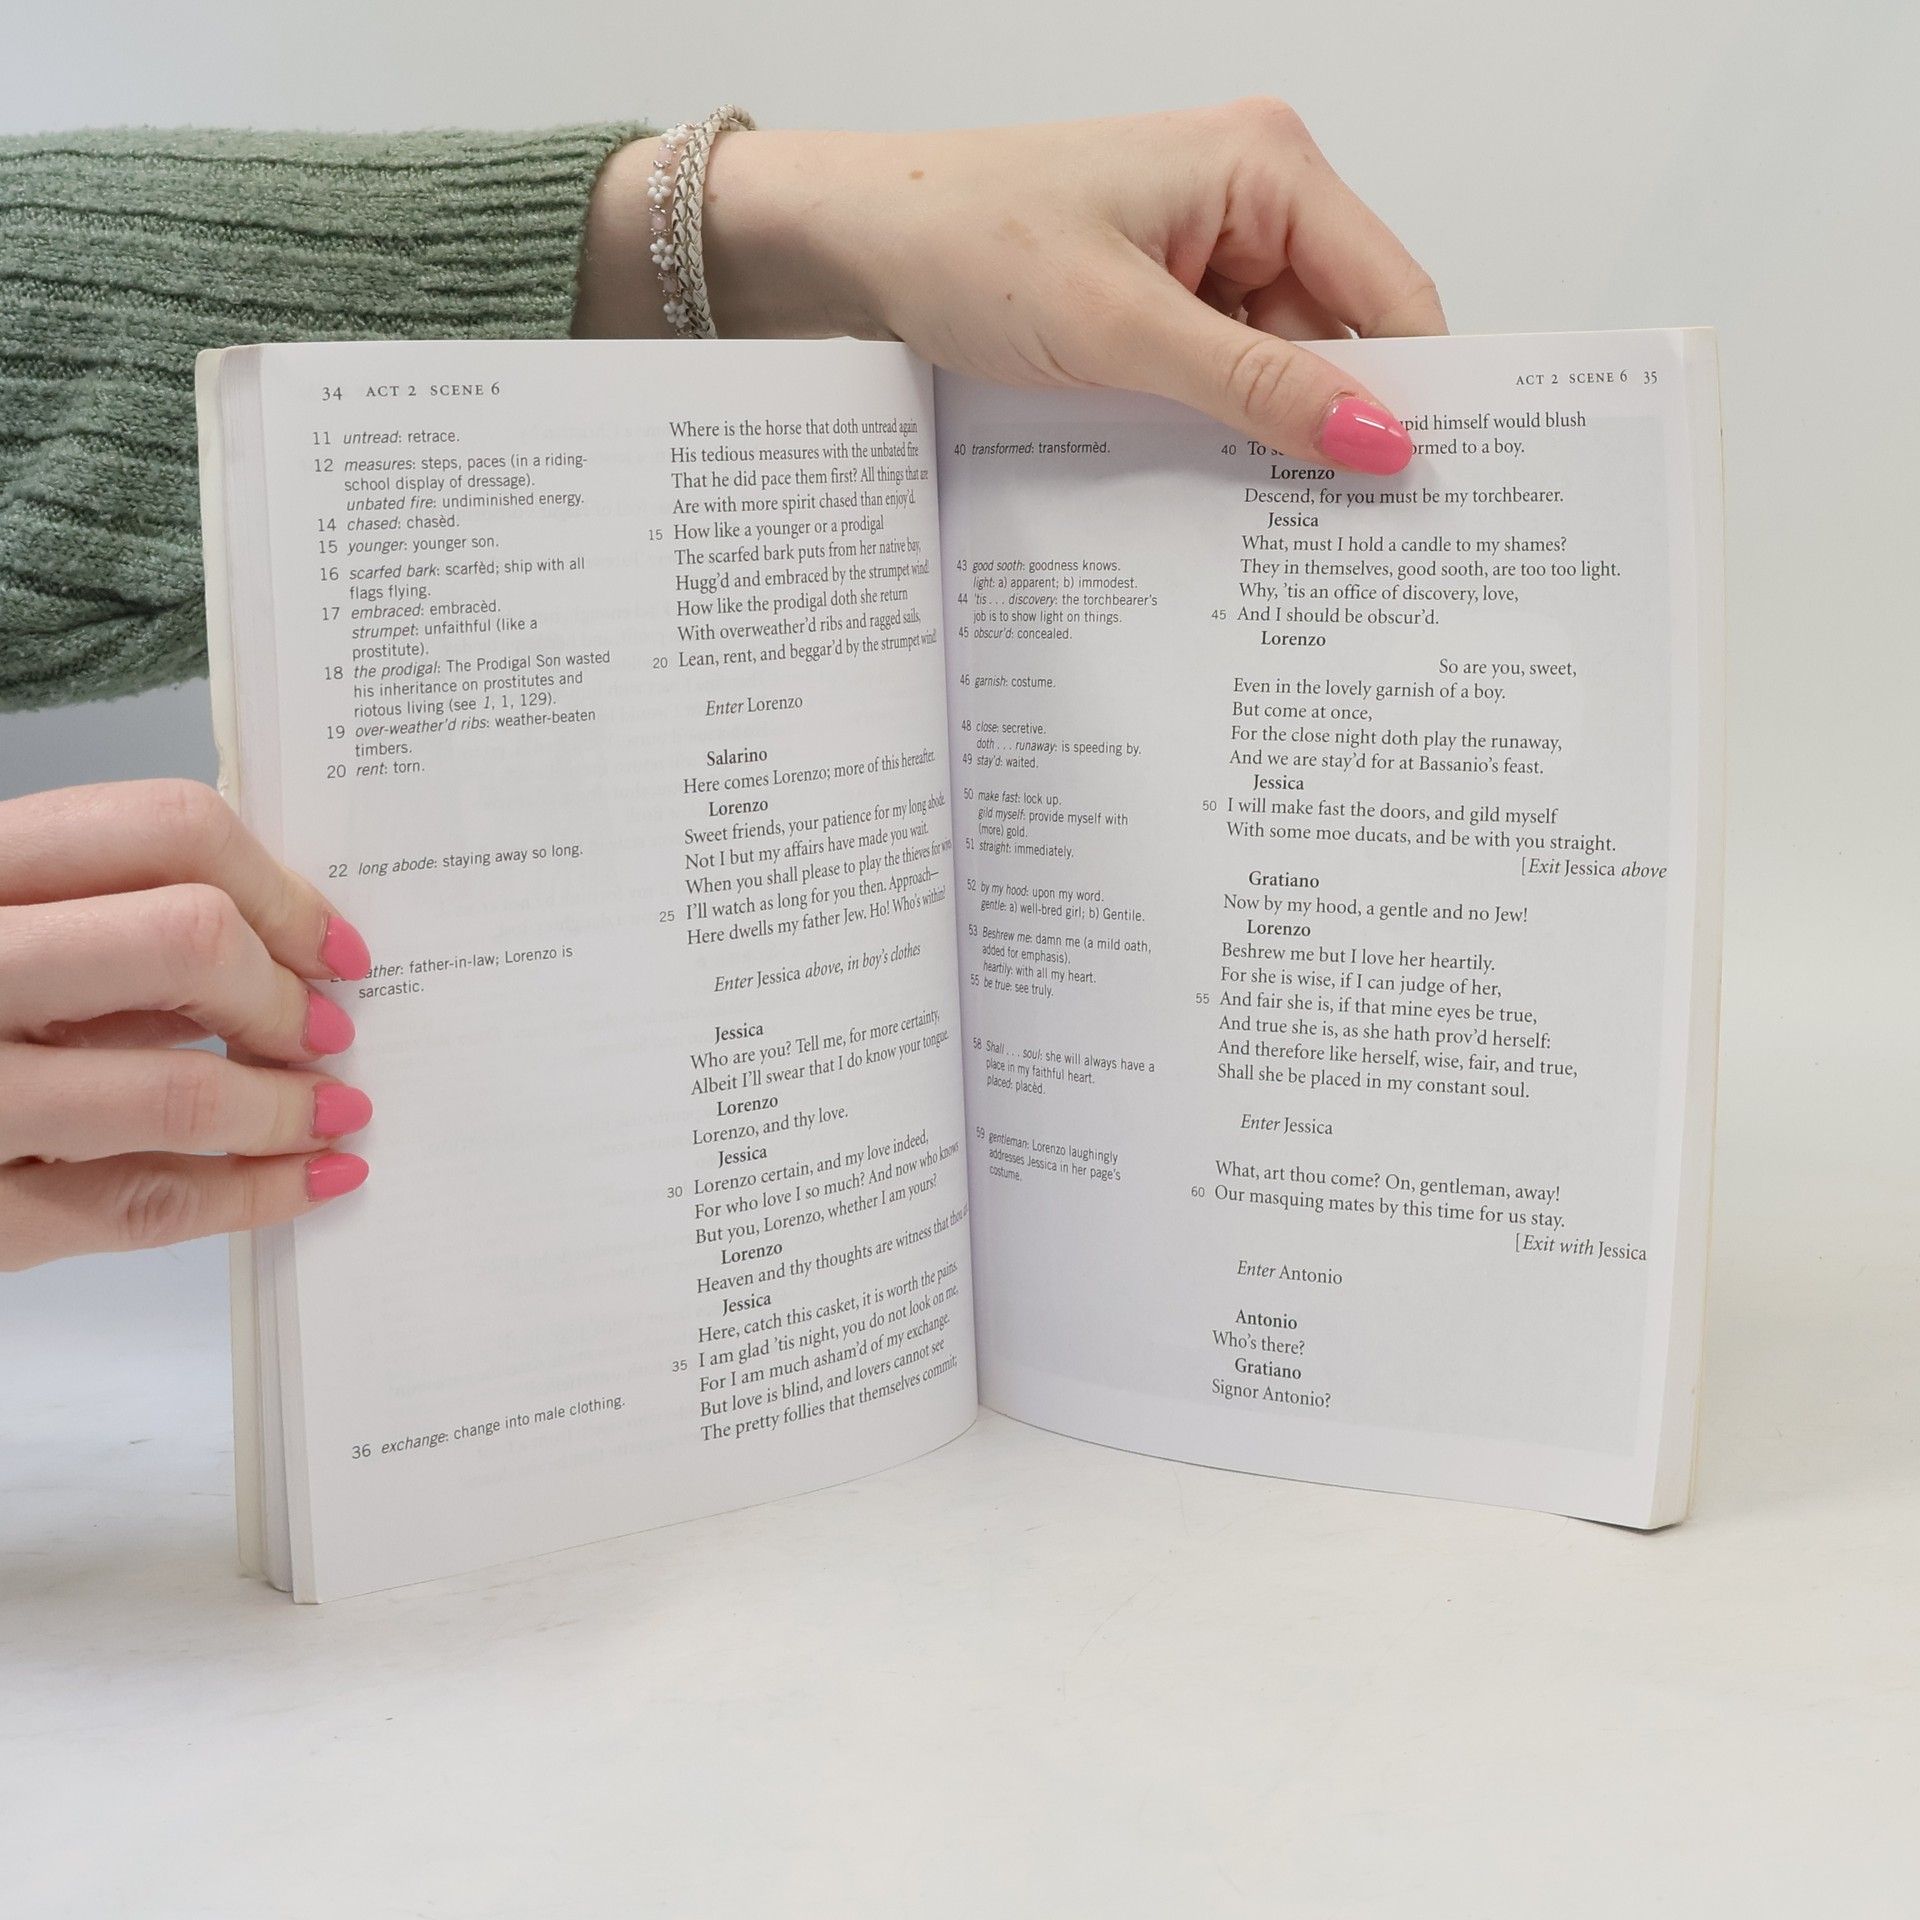 34 ACT 2 SCENE 6
11 untread: retrace.
12 measures: steps, paces (in a riding-
school display of dressage).
unbated fire: undiminished energy.
14 chased: chasèd.
15 younger: younger son.
16 scarfed bark: scarfèd; ship with all
flags flying.
17 embraced: embracèd.
strumpet: unfaithful (like a
prostitute).
18 the prodigal: The Prodigal Son wasted
his inheritance on prostitutes and
riotous living (see 1, 1, 129).
19 over-weather'd ribs: weather-beaten
timbers.
20 rent: torn.
22 long abode: staying away so long.
father-in-law; Lorenzo is
sarcastic.
36 exchange: change into male clothing.
Where is the horse that doth untread again
His tedious measures with the unbated fire
That he did pace them first? All things that are
Are with more spirit chased than enjoy'd.
15 How like a younger or a prodigal
The scarfed bark puts from her native bay,
Hugg'd and embraced by the strumpet wind!
How like the prodigal doth she return
With overweather'd ribs and ragged sails,
20 Lean, rent, and beggar'd by the strumpet wind!
Enter Lorenzo
Salarino
Here comes Lorenzo; more of this hereafter.
Lorenzo
Sweet friends, your patience for my long abode.
Not I but my affairs have made you wait.
When you shall please to play the thieves for wives
25 I'll watch as long for you then. Approach—
Here dwells my father Jew. Ho! Who's within!
Enter Jessica above, in boy's clothes
Jessica
Who are you? Tell me, for more certainty,
Albeit I'll swear that I do know your tongue.
Lorenzo
Lorenzo, and thy love.
Jessica
30 Lorenzo certain, and my love indeed,
For who love I so much? And now who knows
But you, Lorenzo, whether I am yours?
Lorenzo
Heaven and thy thoughts are witness that thou art.
Jessica
Here, catch this casket, it is worth the pains.
35 I am glad 'tis night, you do not look on me,
For I am much asham'd of my exchange.
But love is blind, and lovers cannot see
The pretty follies that themselves commit;
ACT 2 SCENE 6 35
40 transformed: transformèd.
43 good sooth: goodness knows.
light: a) apparent; b) immodest.
44 'tis . . . discovery: the torchbearer's
job is to show light on things.
45 obscur'd: concealed.
46 garnish: costume.
48 close: secretive.
doth . . . runaway: is speeding by.
49 stay'd: waited.
50 make fast: lock up.
gild myself: provide myself with
(more) gold.
51 straight: immediately.
52 by my hood: upon my word.
gentle: a) well-bred girl; b) Gentile.
53 Beshrew me: damn me (a mild oath,
added for emphasis).
heartily: with all my heart.
55 be true: see truly.
58 Shall . . . soul: she will always have a
place in my faithful heart.
placed: placèd.
59 gentleman: Lorenzo laughingly
addresses Jessica in her page's
costume.
himself would blush
40 To to a boy.
Lorenzo
Descend, for you must be my torchbearer.
Jessica
What, must I hold a candle to my shames?
They in themselves, good sooth, are too too light.
Why, 'tis an office of discovery, love,
45 And I should be obscur'd.
Lorenzo
So are you, sweet,
Even in the lovely garnish of a boy.
But come at once,
For the close night doth play the runaway,
And we are stay'd for at Bassanio's feast.
Jessica
50 I will make fast the doors, and gild myself
With some moe ducats, and be with you straight.
[Exit Jessica above
Gratiano
Now by my hood, a gentle and no Jew!
Lorenzo
Beshrew me but I love her heartily.
For she is wise, if I can judge of her,
55 And fair she is, if that mine eyes be true,
And true she is, as she hath prov'd herself:
And therefore like herself, wise, fair, and true,
Shall she be placed in my constant soul.
Enter Jessica
What, art thou come? On, gentleman, away!
60 Our masquing mates by this time for us stay.
[Exit with Jessica
Enter Antonio
Antonio
Who's there?
Gratiano
Signor Antonio?